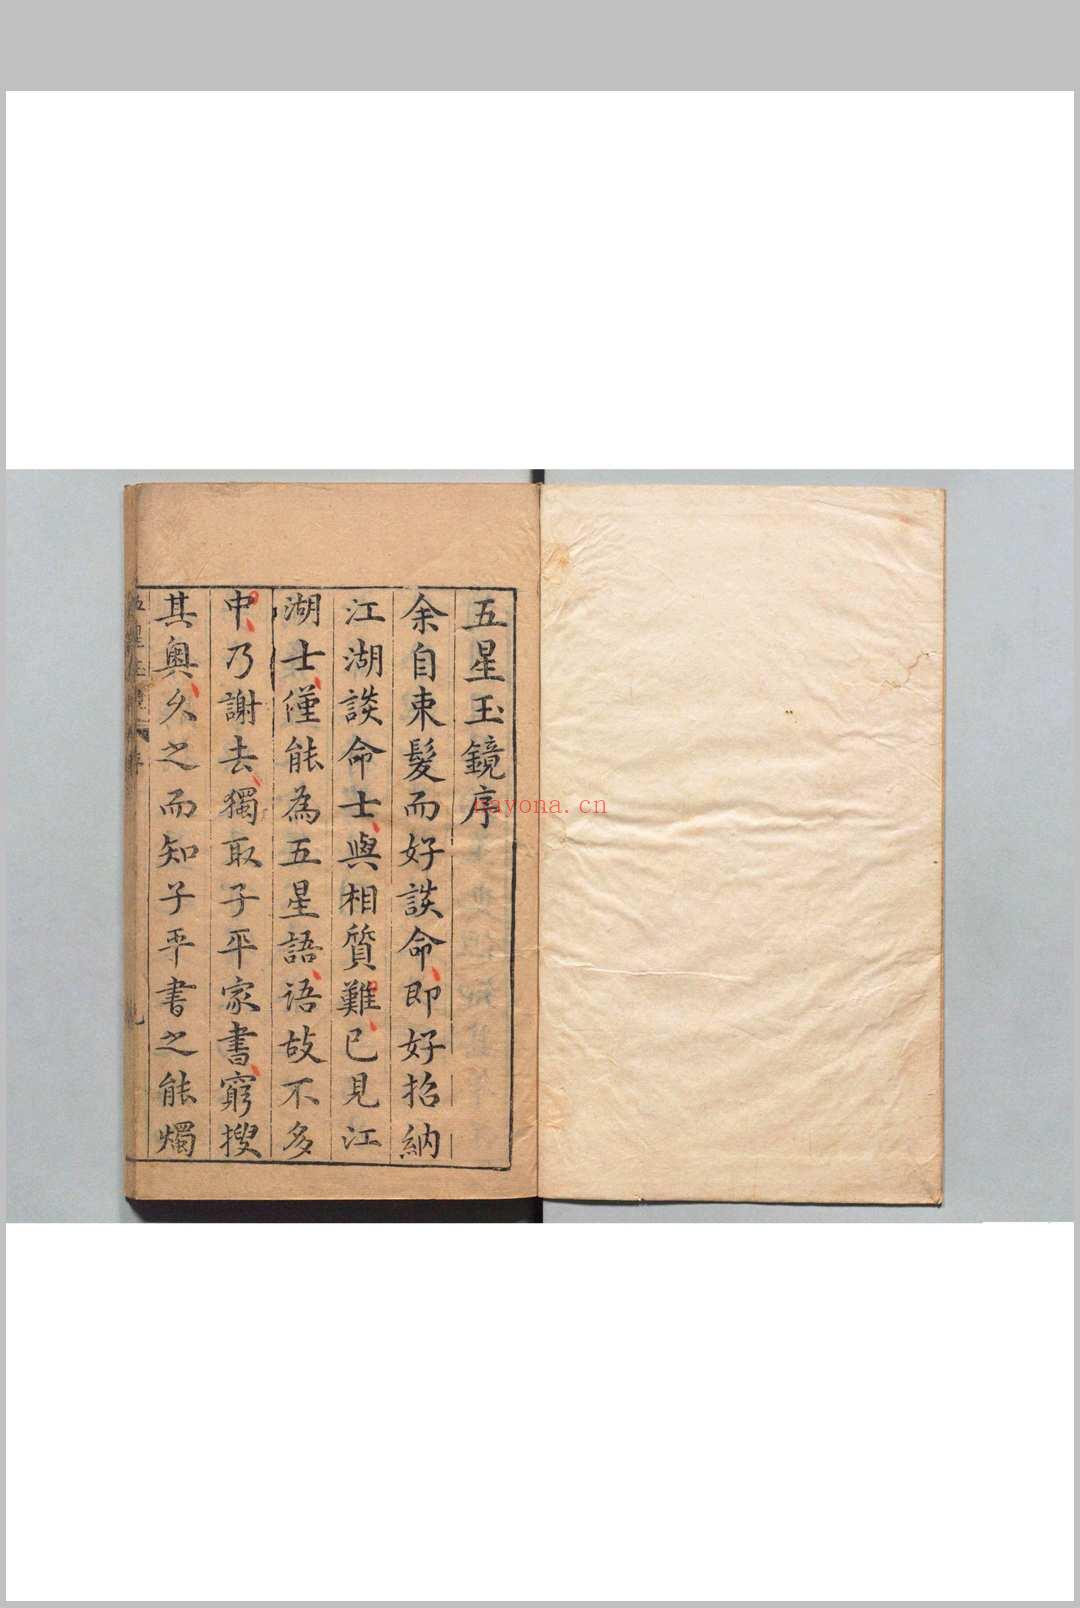 五星玉鏡序
余自束髮而好談命即好招納
江湖談命士與相質難已見江
湖士僅能為五星語語故不多
中乃謝去獨取子平家書窮搜
其奧久之而知子平書之能燭
nayona.cn